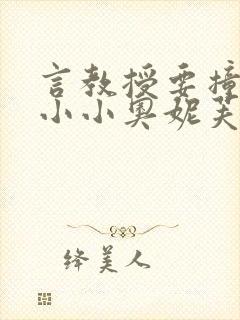 言教授要撞
小小奥妮芙
绛美人